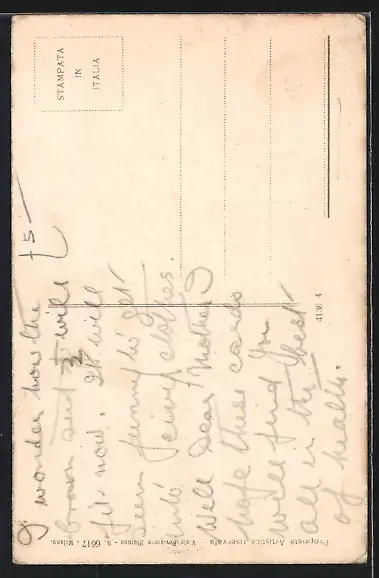 STAMPATA
IN
ITALIA
I wonder how the
brown suit will
fit now. It will
seem funny to get
into civvy clothes.
Well dear Mother
hope these cards
will find you
all in the best
of health.
5
4136 4
Proprietà Artistica riservata - Visto Revisione Stampa - N. 6617 - Milano.